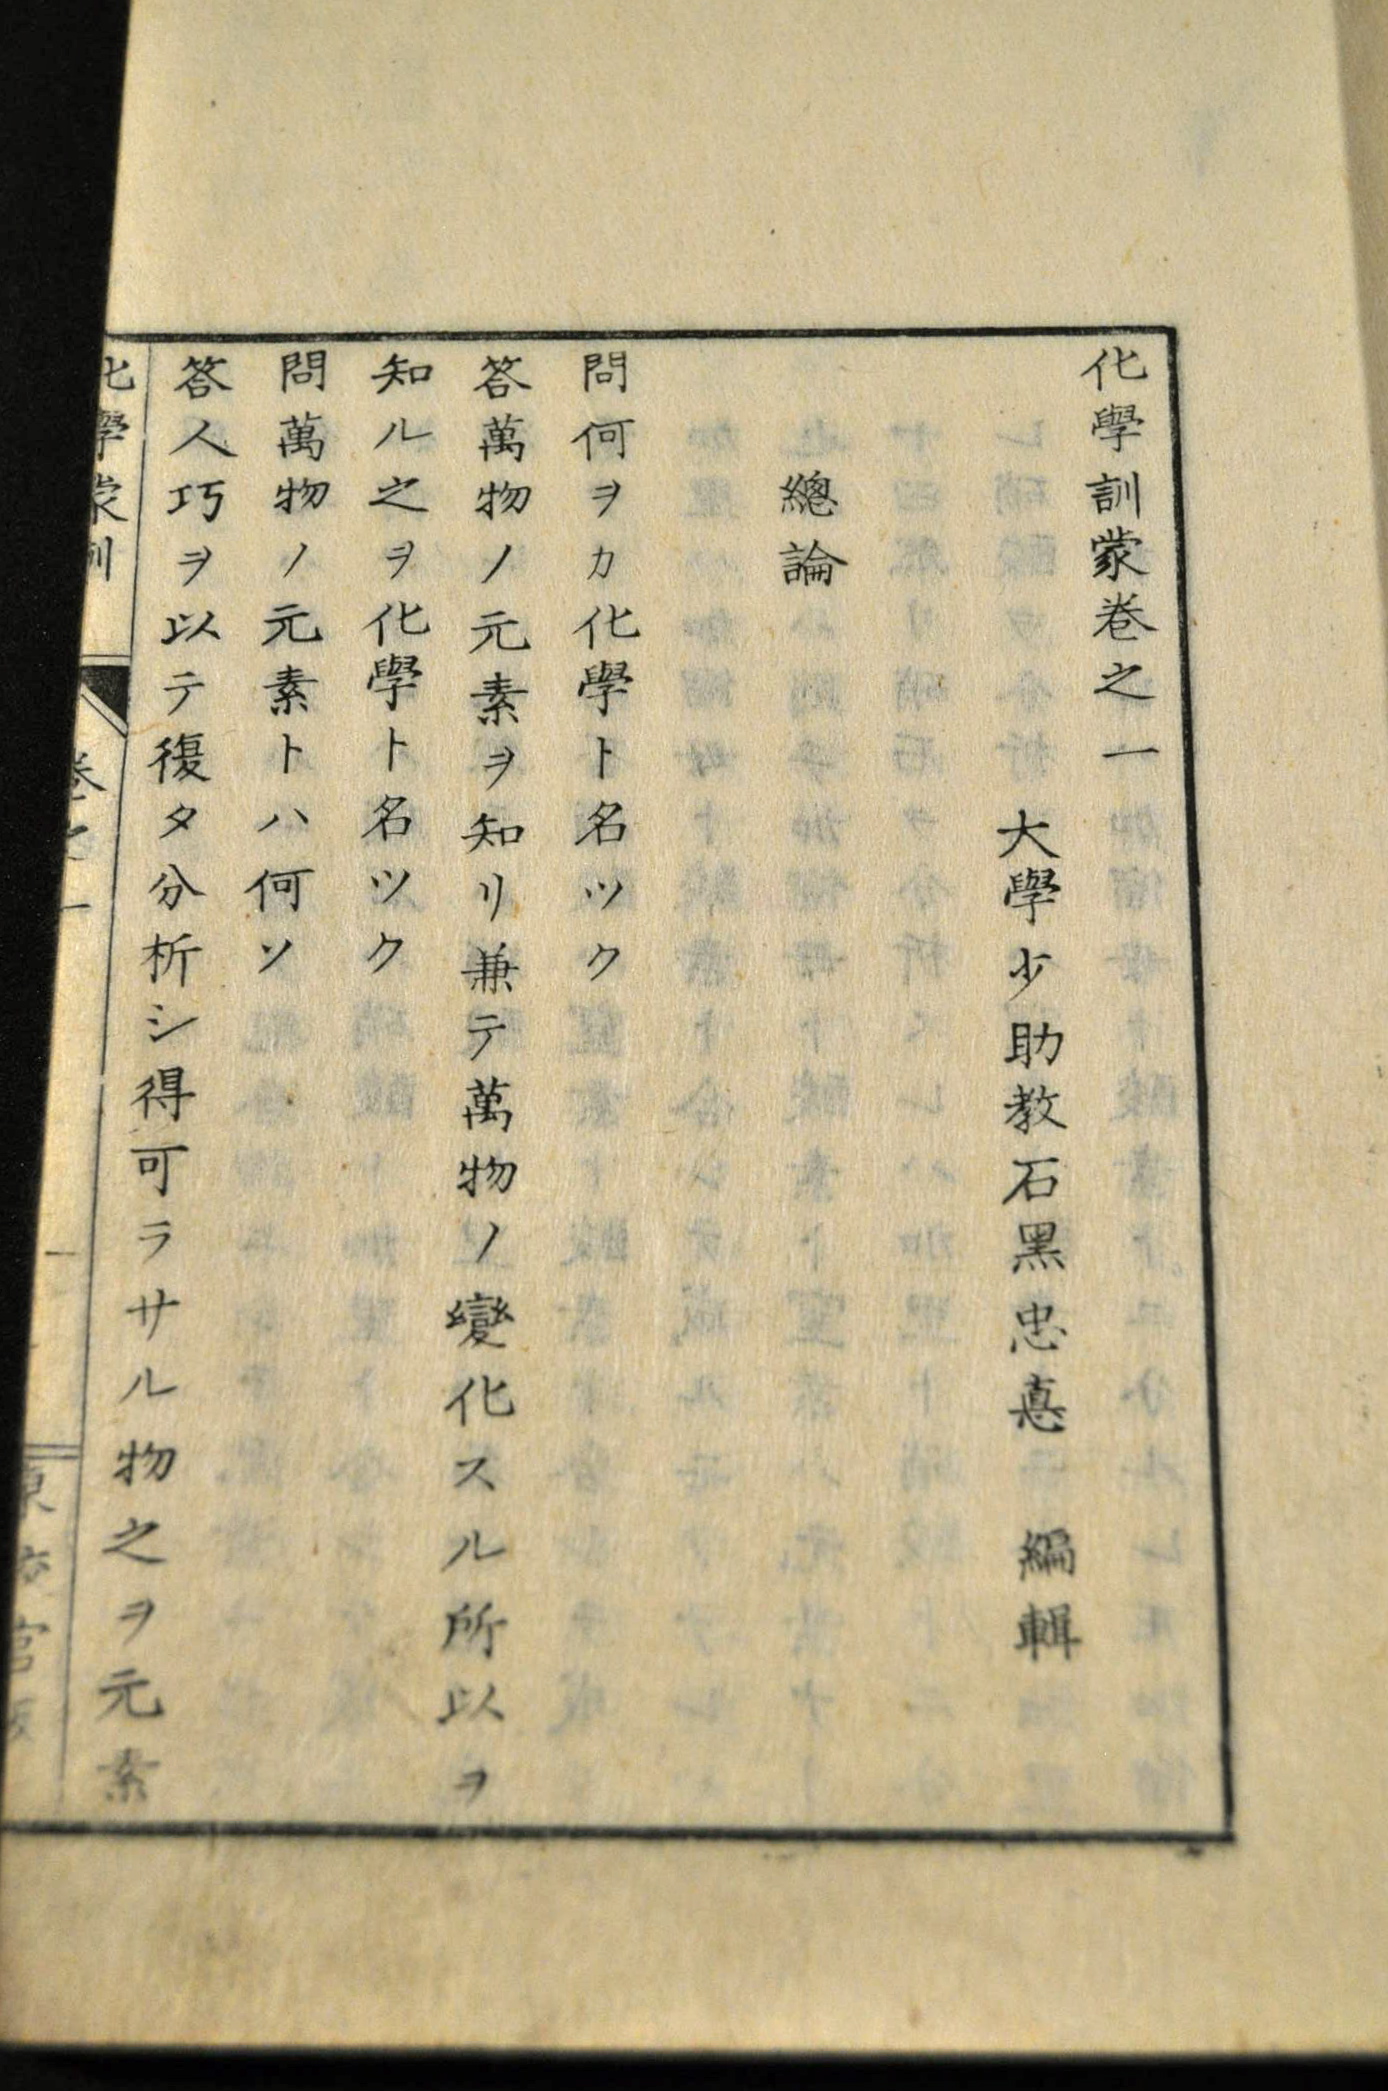 化學訓蒙卷之一
大學少助教石黑忠悳 編輯
總論
問何ヲカ化學ト名ツク
答萬物ノ元素ヲ知リ兼テ萬物ノ變化スル所以ヲ
知ル之ヲ化學ト名ツク
問萬物ノ元素トハ何ソ
答人巧ヲ以テ復タ分析シ得可ラサル物之ヲ元素
化學蒙訓 卷之一 一